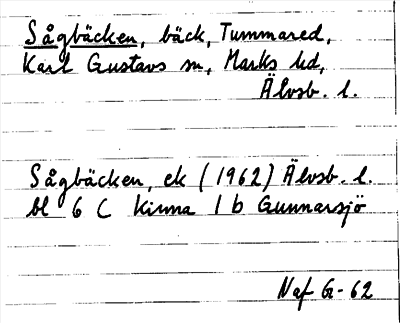 Sågbäcken, bäck, Tummared,
Karl Gustavs sn, Marks hd,
Älvsb. l.
Sågbäcken, ek (1962) Älvsb. l.
bl 6 C Kinna 1 b Gunnarsjö
Naf G-62